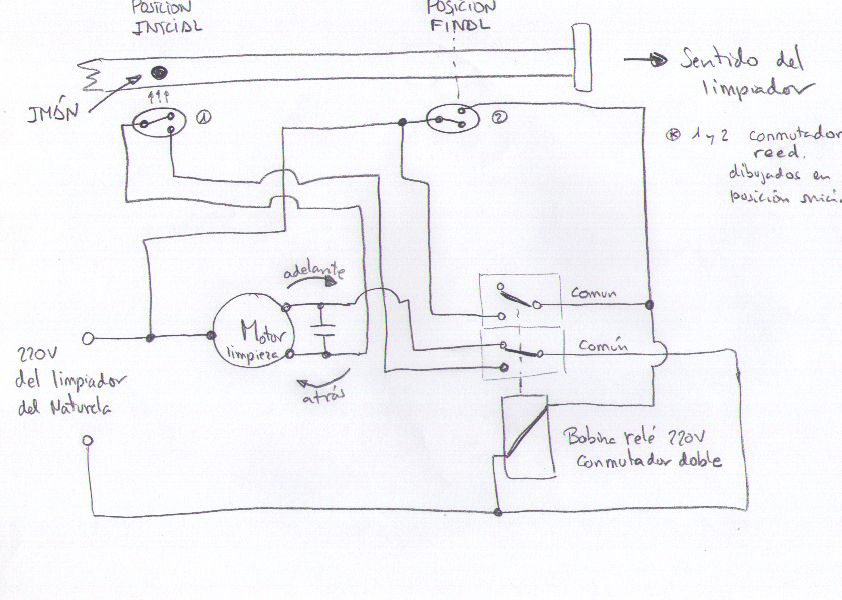 POSICION
INICIAL
POSICION
FINAL
Sentido del
limpiador
IMÁN
1
2
* 1 y 2 conmutador
reed.
dibujados en
posición inici
adelante
Motor
limpieza
atrás
220V
del limpiador
del Naturela
Comun
Común
Bobina relé 220V
Conmutador doble